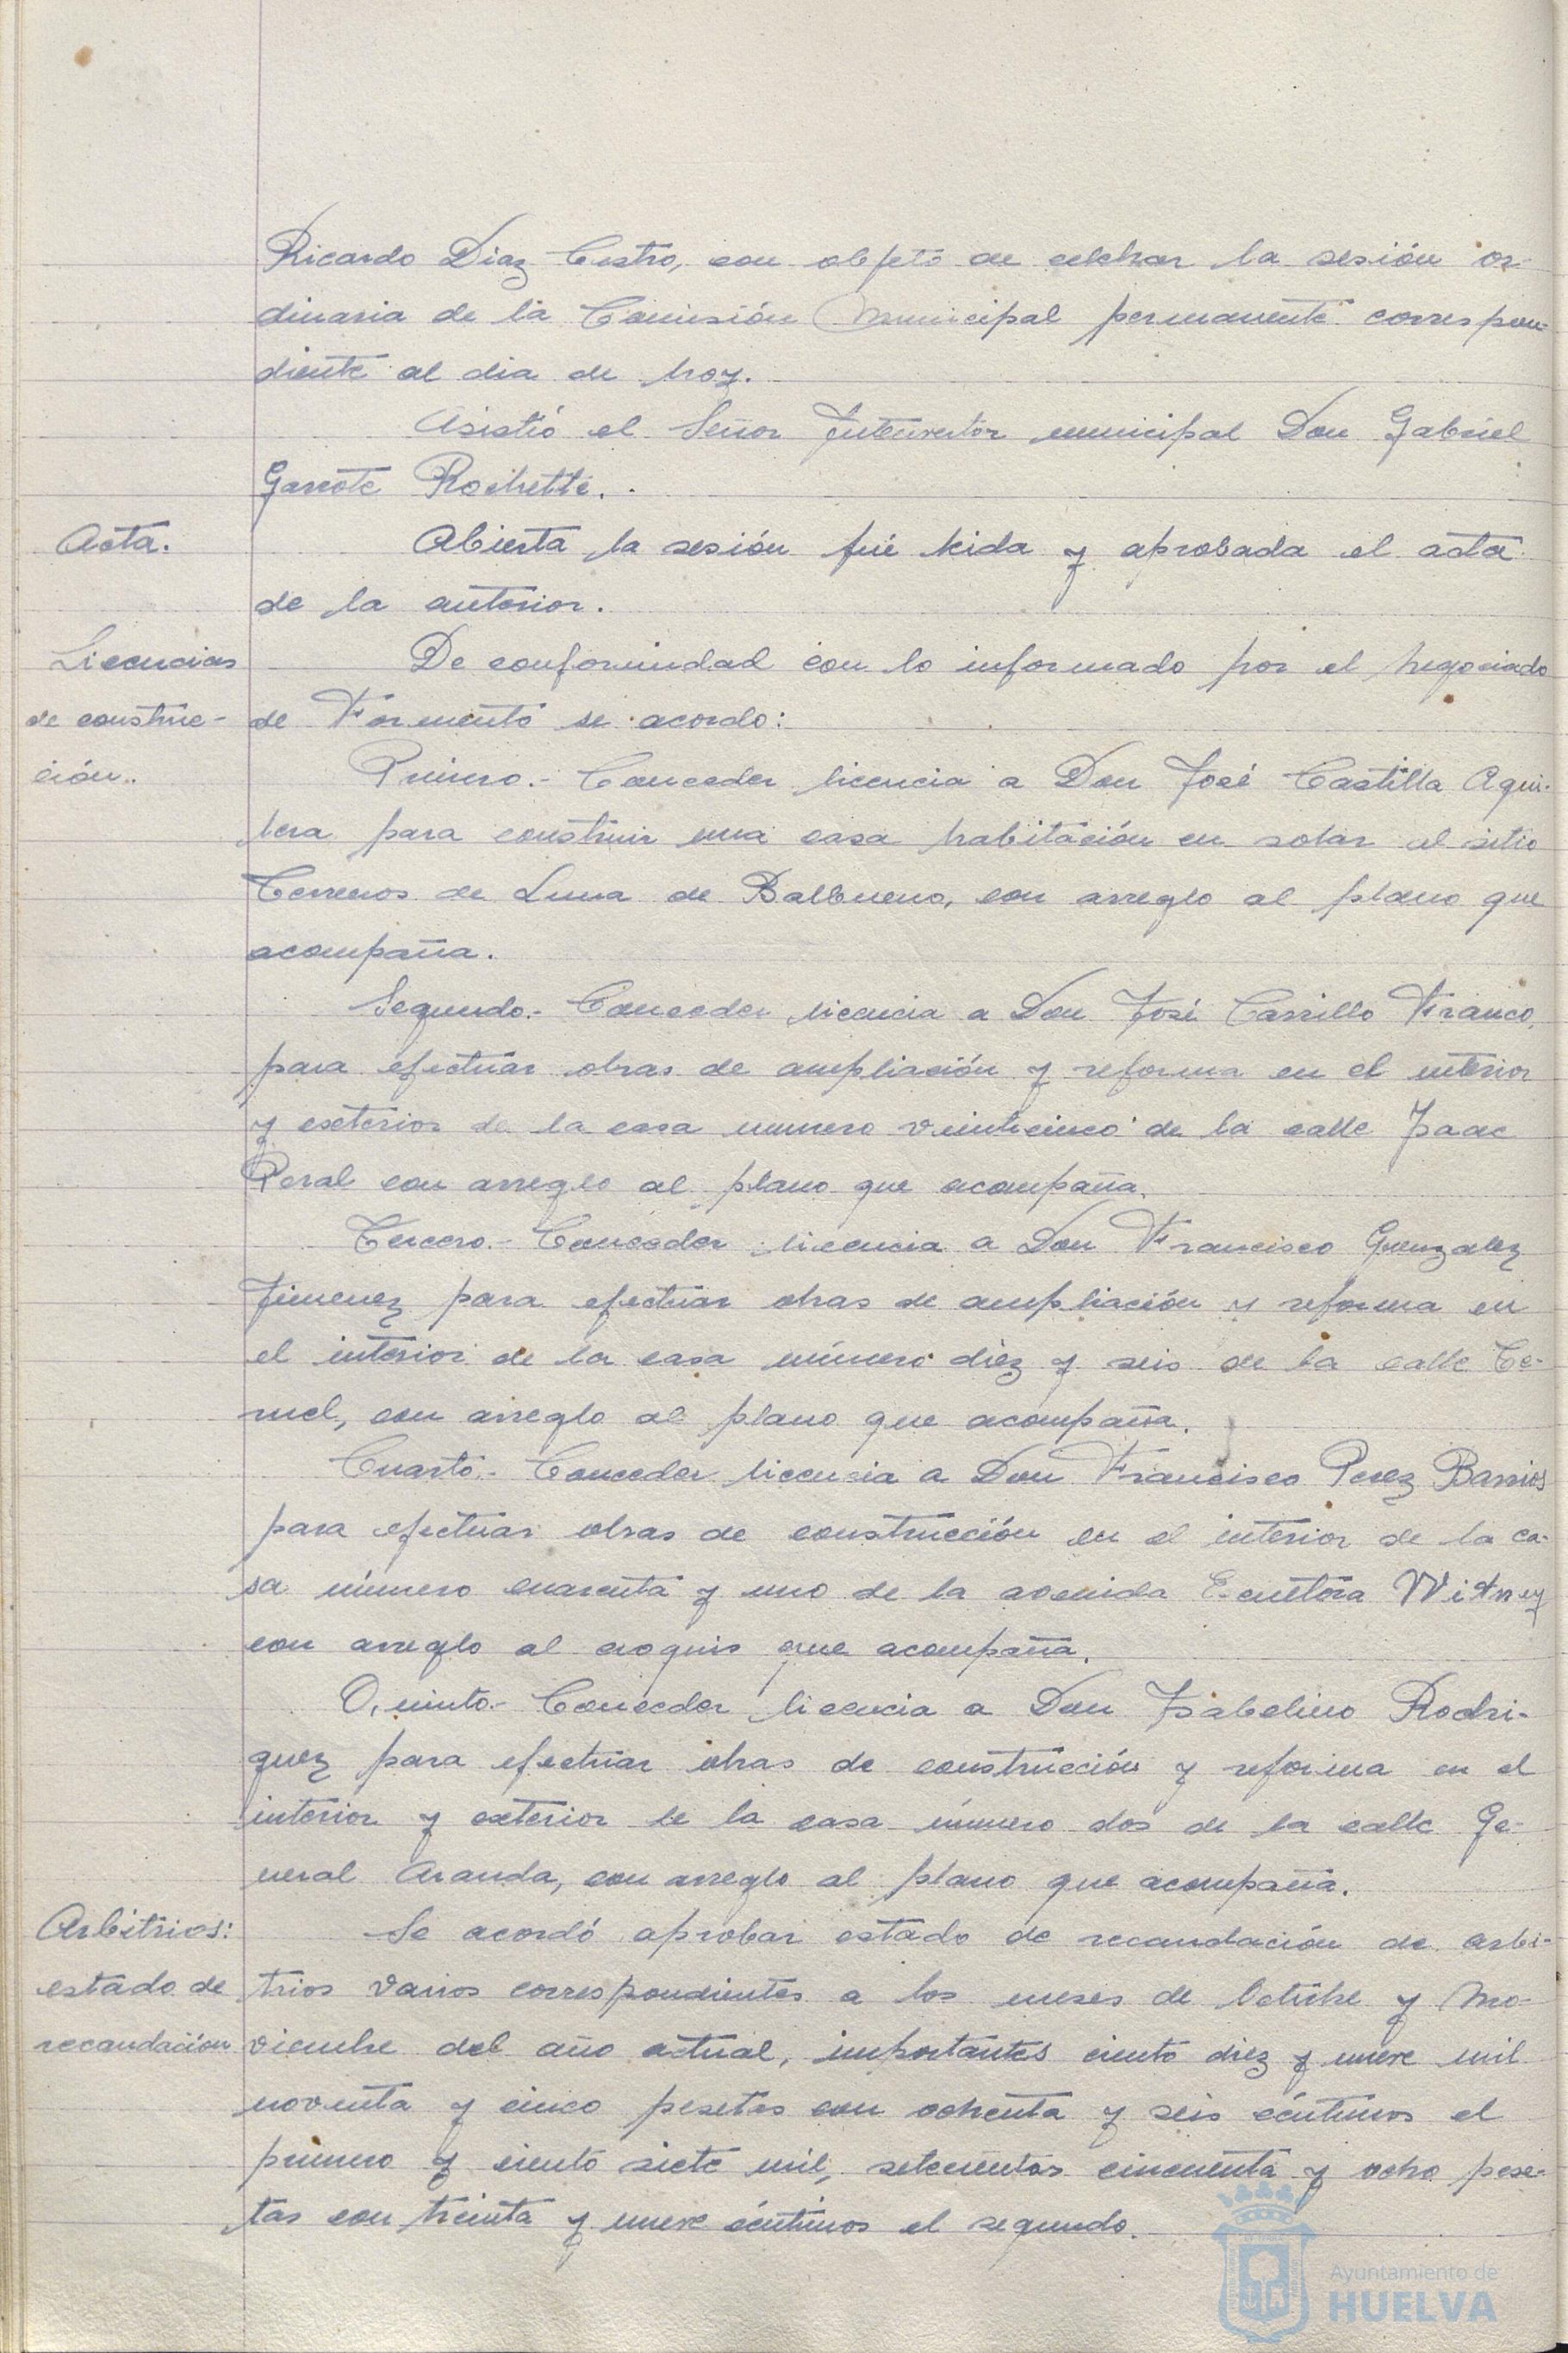 Ricardo Diaz Castro, con objeto de celebrar la sesión or-
dinaria de la Comisión Municipal permanente correspon-
diente al dia de hoy.
Asistió el Señor Interventor municipal Don Gabriel
Garrote Rochette.
Acta.
Abierta la sesión fué leida y aprobada el acta
de la anterior.
Licencias
de construc-
ción.
De conformidad con lo informado por el negociado
de Fomento se acordo:
Primero.- Conceder licencia a Don José Castilla Agui-
lera para construir una casa habitación en solar al sitio
Terrenos de Luna de Balbueno, con arreglo al plano que
acompaña.
Segundo.- Conceder licencia a Don José Carrillo Franco,
para efectuar obras de ampliación y reforma en el interior
y exterior de la casa numero veinticinco de la calle Isaac
Peral con arreglo al plano que acompaña.
Tercero.- Conceder licencia a Don Francisco Gonzalez
Jimenez para efectuar obras de ampliación y reforma en
el interior de la casa número diez y seis de la calle Te-
ruel, con arreglo al plano que acompaña.
Cuarto.- Conceder licencia a Don Francisco Perez Barrios
para efectuar obras de construcción en el interior de la ca-
sa número cuarenta y uno de la avenida Escultora Witney
con arreglo al croquis que acompaña.
Quinto.- Conceder licencia a Don Isabelino Rodri-
guez para efectuar obras de construcción y reforma en el
interior y exterior de la casa número dos de la calle Ge-
neral Aranda, con arreglo al plano que acompaña.
Arbitrios:
estado de
recaudación
Se acordó aprobar estado de recaudación de arbi-
trios varios correspondientes a los meses de Octubre y No-
viembre del año actual, importantes ciento diez y nueve mil
noventa y cinco pesetas con ochenta y seis céntimos el
primero y ciento siete mil, setecientas cincuenta y ocho pese-
tas con treinta y nueve céntimos el segundo.
Ayuntamiento de
HUELVA